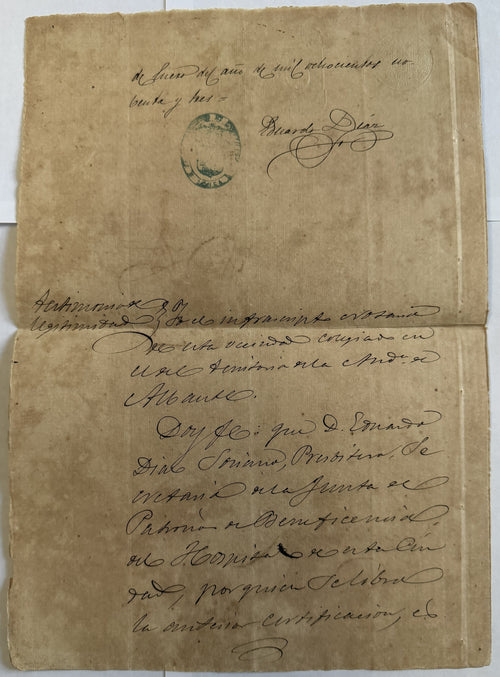 de Enero del año de mil ochocientos no
benta y tres =
Eduardo Diaz
Testimonio de
legitimidad
Yo el infrascripto notario
de esta vecindad colegiado en
el del territorio de la Auda. de
Albacete.
Doy fe: que D. Eduardo
Diaz Soriano, Presbitero, Se
cretario de la Junta de
Patronos de Beneficencia
del Hospital de esta Ciu
dad, por quien se libra
la anterior certificacion, es